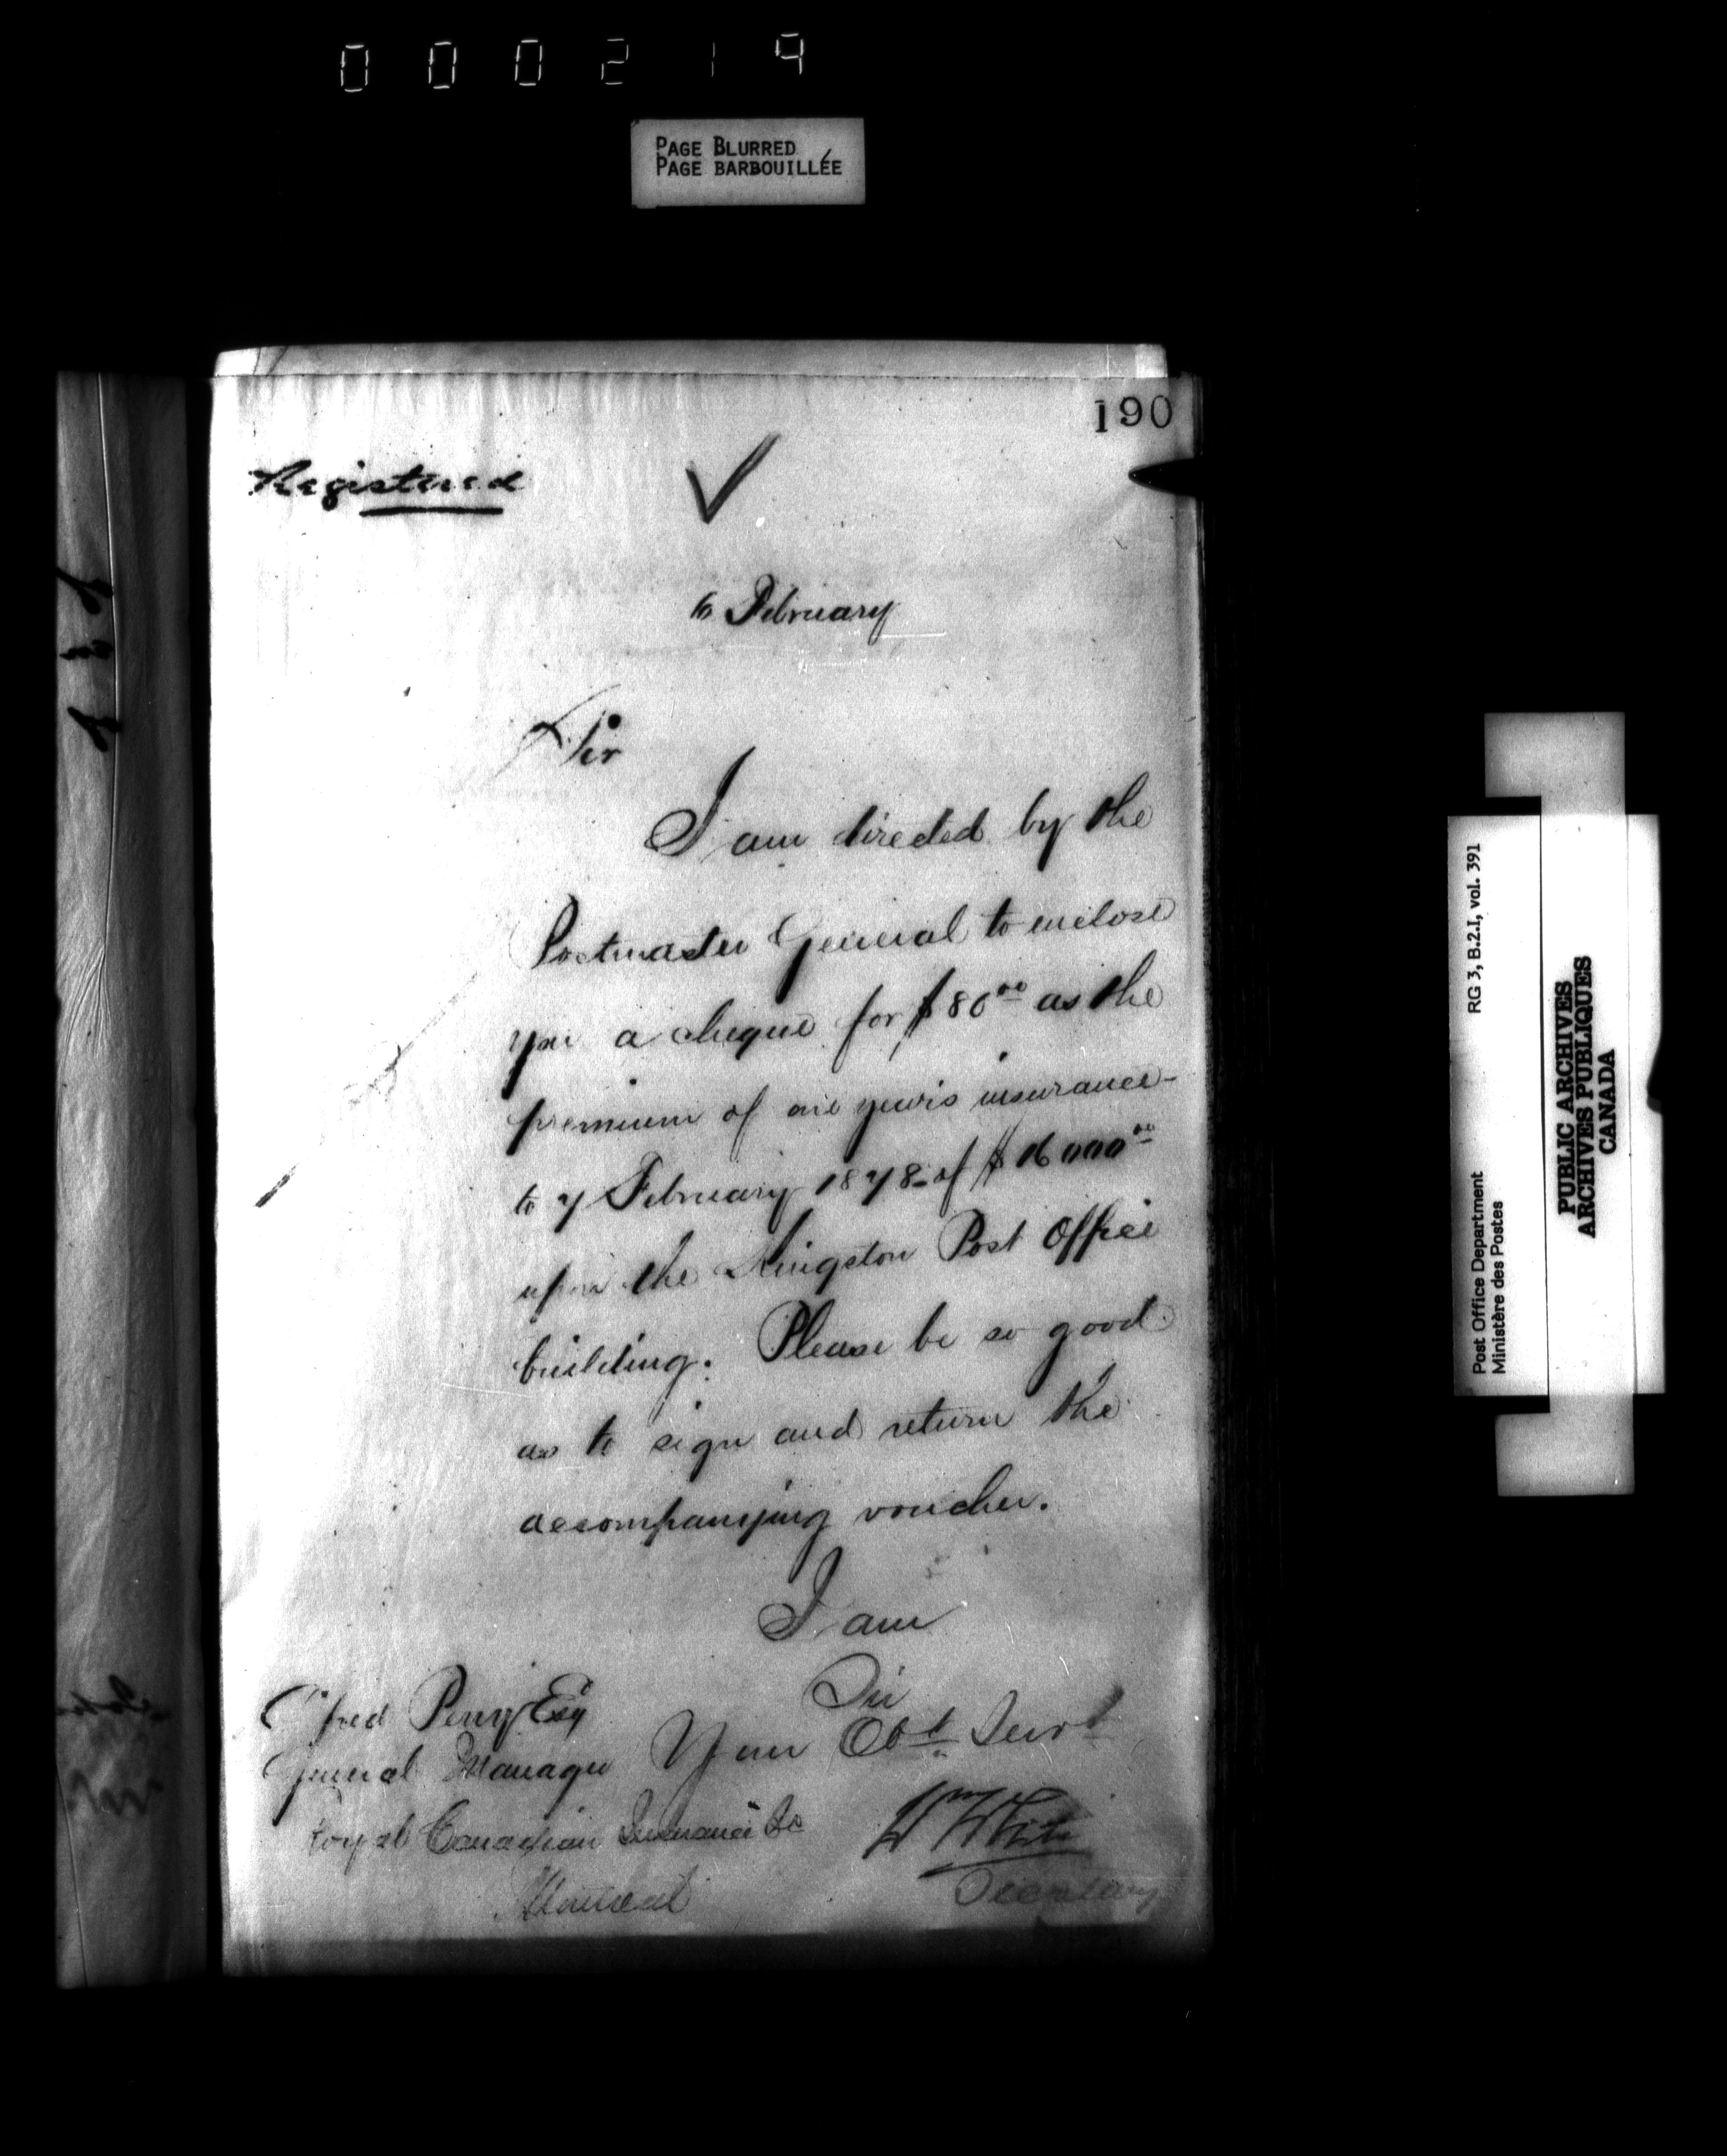 000219
PAGE BLURRED
PAGE BARBOUILLÉE
190
Registered
6 February
Sir
I am directed by the
Postmaster General to enclose
you a cheque for $80 00 as the
premium of one year's insurance -
to 7 February 1878 of $16000 00
upon the Kingston Post Office
building. Please be so good
as to sign and return the
accompanying voucher.
I am
Sir
Your Obt Servt
Wm White
Secretary
Alfred Perry Esq
General Manager
Royal Canadian Insurance Co
Montreal
RG 3, B.2.I, vol. 391
Post Office Department
Ministère des Postes
PUBLIC ARCHIVES
ARCHIVES PUBLIQUES
CANADA